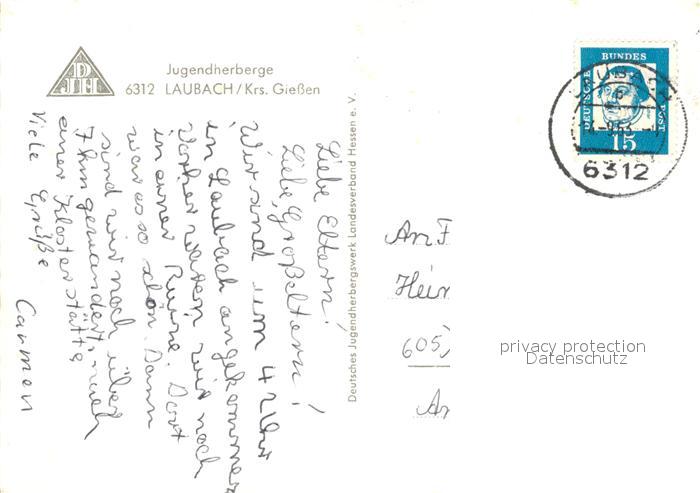 DJH
Jugendherberge
6312 LAUBACH/Krs. Gießen
Liebe Eltern!
Liebe Großeltern!
Wir sind um 4 Uhr
in Laubach angekommen
Vorher waren wir noch
in einer Ruine. Dort
war es so schön. Dann
sind wir noch über
7 km gewandert, nach
einer Klosterstätte
Viele Grüße
Carmen
Deutsches Jugendherbergswerk Landesverband Hessen e. V.
DEUTSCHE BUNDESPOST
15
LAUBACH
6312
An F
Hein
605
An
privacy protection
Datenschutz